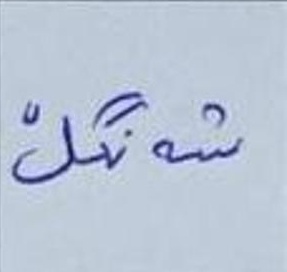 شەنگڵ